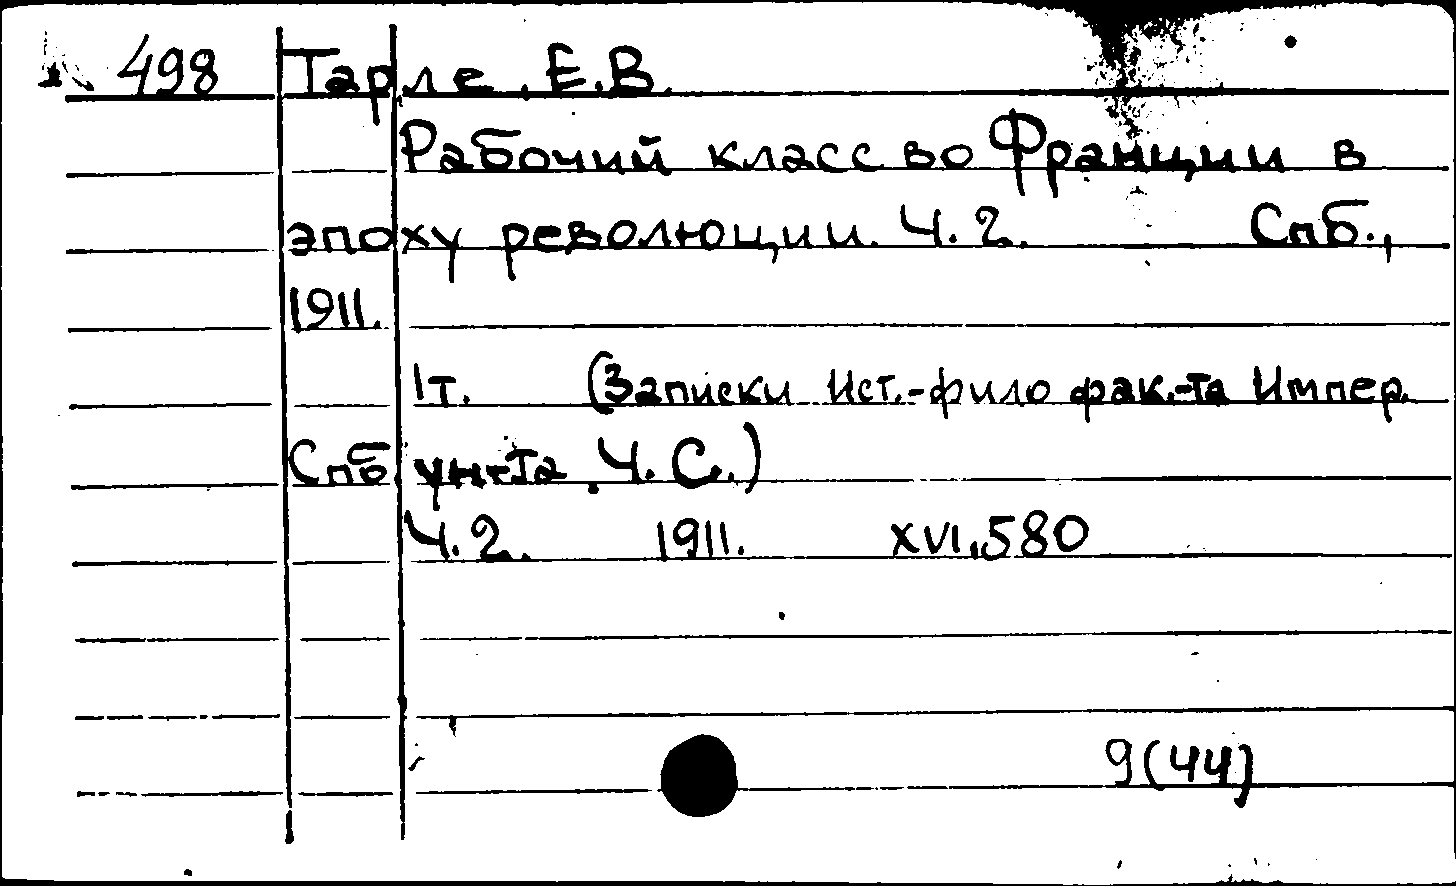 498 Тарле, Е.В.
Рабочий класс во Франции в
эпоху революции. Ч.2. Спб.,
1911.
1т. (Записки Ист.-фило фак.-та Импер.
Спб. ун-та. Ч. С.)
Ч.2. 1911. XVI,580
9(44)